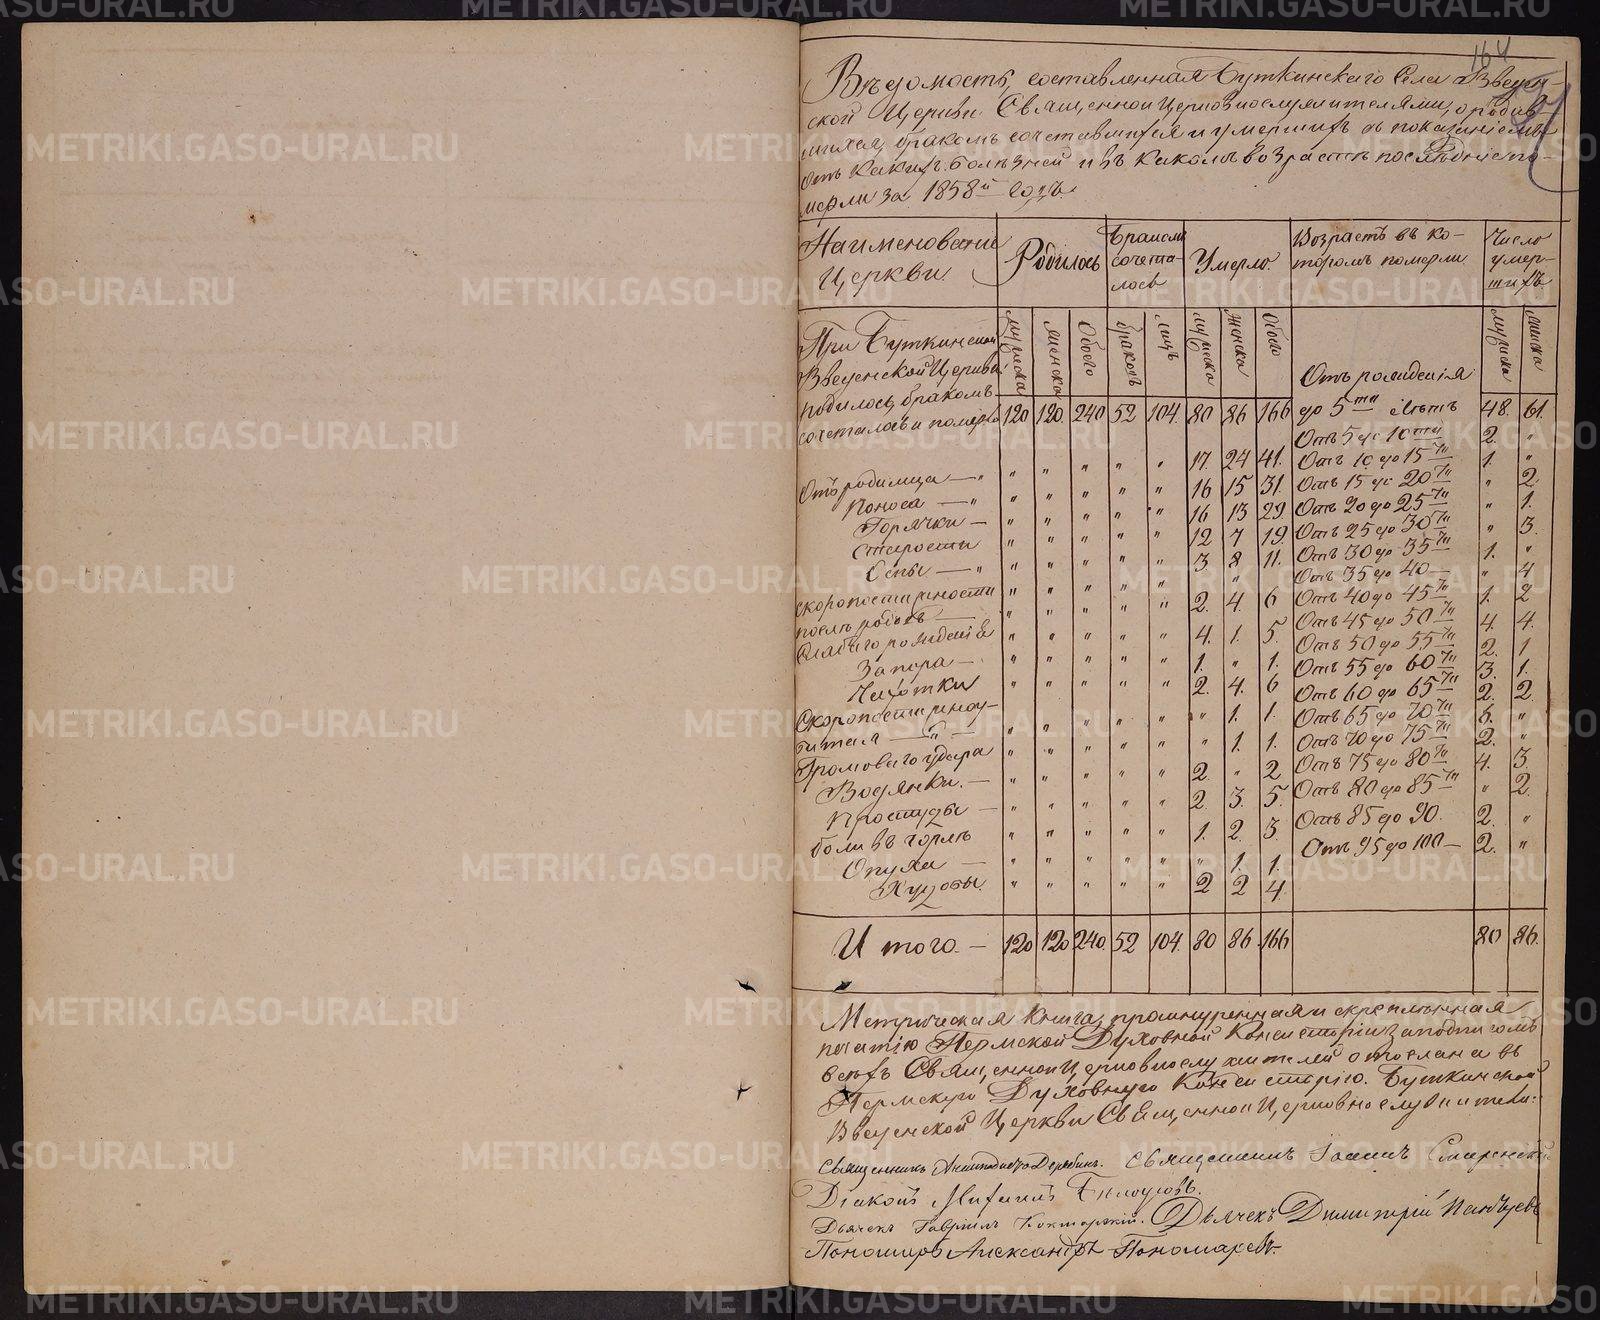 164
Вѣдомость, составленная Буткинскаго Села Введен-
ской Церкви Священноицерковнослужителями, о родив-
шихся, бракомъ сочетавшихся и умершихъ съ показаніемъ
отъ какихъ болѣзней и въ какомъ возрастѣ последніе по-
мерли за 1858й Годъ.
Наименованіе Церкви.
Родилось
Бракомъ сочета-лось
Умерло.
Возрастъ въ ко-торомъ померли
Число умер-шихъ.
мужеска женска Обоего браковъ лицъ мужеска женска Обоего мужеска женска
При Буткинской
Введенской Церкви
родилось, бракомъ Отъ рожденія
сочеталось и померло 120 120 240 52 104 80 86 166 до 5ти лѣтъ 48. 61.
Отъ 5 до 10ти 2. "
Отъ родимца — " " " " " " 17. 24 41. Отъ 10 до 15ти 1. "
Поноса — " " " " " " 16 15 31. Отъ 15 до 20ти " 2.
Горячки — " " " " " 16 13 29. Отъ 20 до 25ти " 1.
Старости " " " " " 12 7 19. Отъ 25 до 30ти " 3.
Оспы — " " " " " " 3 8 11. Отъ 30 до 35ти 1. "
скоропостижности Отъ 35 до 40 — " 4
послѣ родовъ — " " " " " 2. 4. 6 Отъ 40 до 45ти 1. 2
Слабаго рожденія " " " " " 4. 1. 5. Отъ 45 до 50ти 4. 4.
Запора — " " " " " 1. " 1. Отъ 50 до 55ти 2. 1
Чахотки " " " " " 2. 4. 6 Отъ 55 до 60ти 3. 1.
Скоропостижно у- Отъ 60 до 65ти 2. 2
битая — " — " " " " " " 1. 1. Отъ 65 до 70ти 6. "
Громоваго удара " " " " " " 1. 1. Отъ 70 до 75ти 2. "
Водянки. — " " " " " 2. " 2 Отъ 75 до 80ти 4. 3.
Простуды — " " " " " 2. 3. 5. Отъ 80 до 85ти " 2.
боли въ горлѣ " " " " " 1. 2. 3 Отъ 85 до 90. 2. "
Опуха — " " " " " " 1. 1. Отъ 95 до 100 — 2. "
Худобы. " " " " " 2 2 4.
Итого. — 120 120 240 52 104. 80 86 166 80 86.
Метрическая Книга, прошнуренная и скрепленная
печатію Пермской Духовной Консисторіи за подписомъ
всѣхъ Священноицерковнослужителей отослана въ
Пермскую Духовную Консисторію. Буткинской
Введенской Церкви Священноицерковнослужители:
Священникъ Дерябинъ. Священникъ Іоаннъ
Діаконъ Михаилъ Белоусовъ.
Дьячекъ Гавріилъ Дьячекъ Димитрій
Пономарь Александръ Пономаревъ.
METRIKI.GASO-URAL.RU